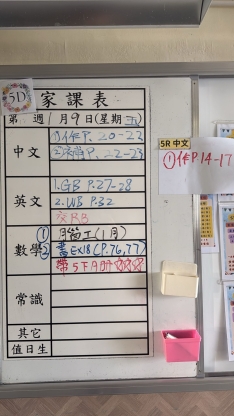 5D
家課表
第 週 1月9日(星期五)
中文
①作P. 20-22
② P. 22-23
英文
1. GB P.27-28
2. WB P.32
交RB
數學
① 月 工(1月)
② 書EX18(P.76,77)
帶5下A冊
常識
其它
值日生
5R 中文
①作P.14-17